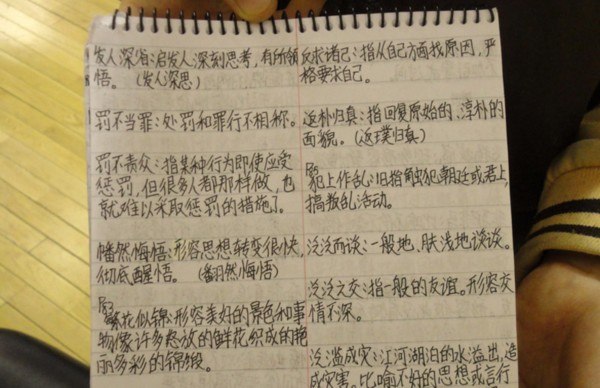 发人深省：启发人深刻思考，有所领
悟。（发人深思）
罚不当罪：处罚和罪行不相称。
罚不责众：指某种行为即使应受
惩罚，但很多人都那样做，也
就难以采取惩罚的措施了。
幡然悔悟：形容思想转变很快，
彻底醒悟。（翻然悔悟）
繁花似锦：形容美好的景色和事
物像许多怒放的鲜花，织成的艳
丽多彩的锦缎。
反求诸己：指从自己方面找原因，严
格要求自己。
返朴归真：指回复原始的、淳朴的
面貌。（返璞归真）
犯上作乱：旧指触犯朝廷或君上，
搞叛乱活动。
泛泛而谈：一般地、肤浅地谈谈。
泛泛之交：指一般的友谊。形容交
情不深。
泛滥成灾：江河湖泊的水溢出，造
成灾害。比喻不好的思想或言行